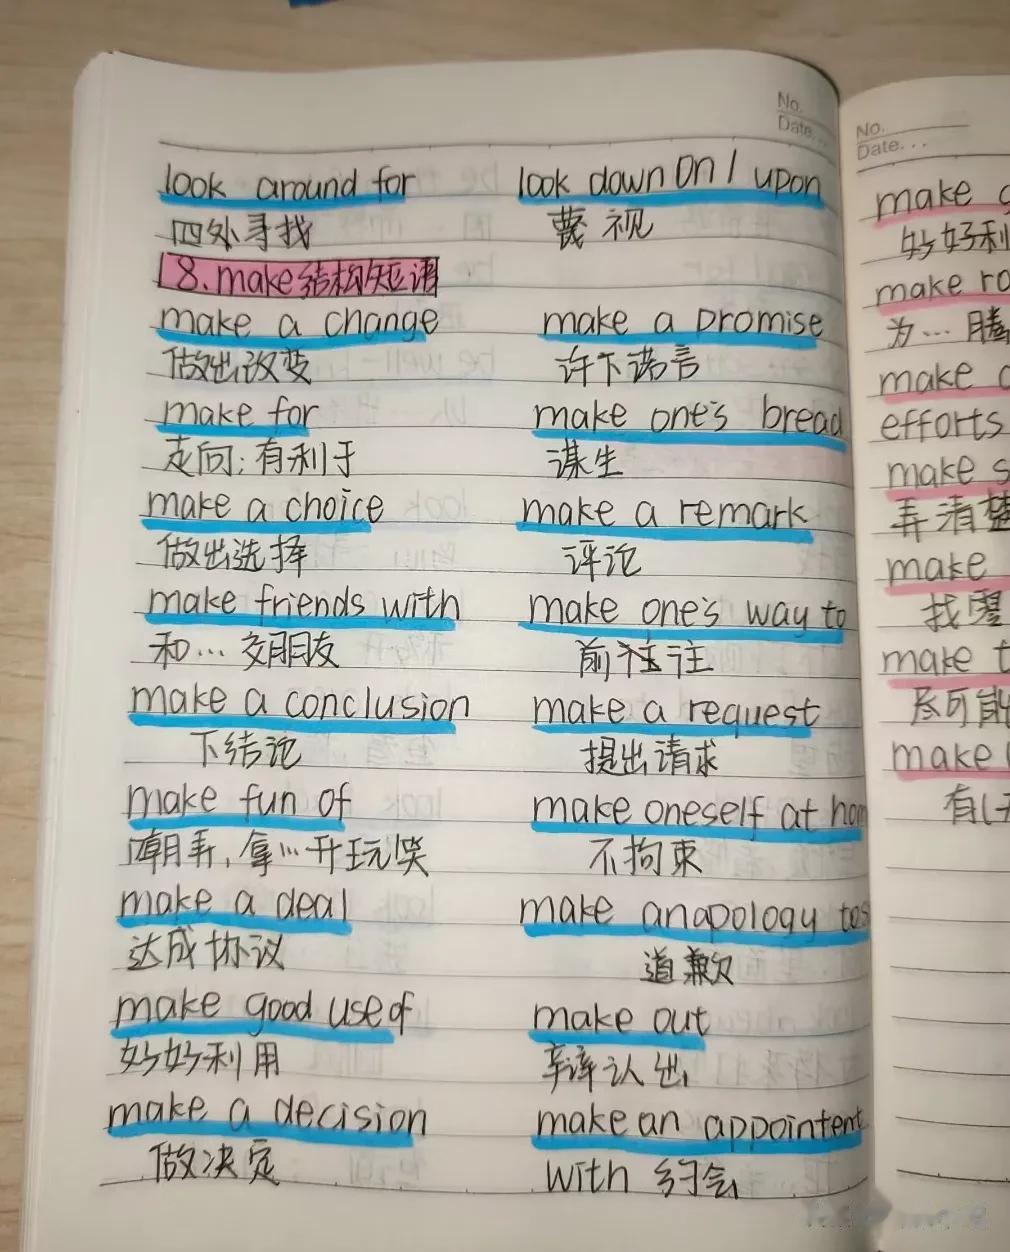 No.
Date...
look around for look down on / upon
四处寻找 蔑视
18.make结构短语
make a change make a promise
做出改变 许下诺言
make for make one's bread
走向;有利于 谋生
make a choice make a remark
做出选择 评论
make friends with make one's way to
和…交朋友 前往
make a conclusion make a request
下结论 提出请求
make fun of make oneself at hom
嘲弄,拿…开玩笑 不拘束
make a deal make an apology to
达成协议 道歉
make good use of make out
好好利用 辩认出
make a decision make an appointent
做决定 with 约会
No.
Date...
make
好好利
make ro
为…腾
make
efforts
make s
弄清楚
make
找零
make t
尽可能
make